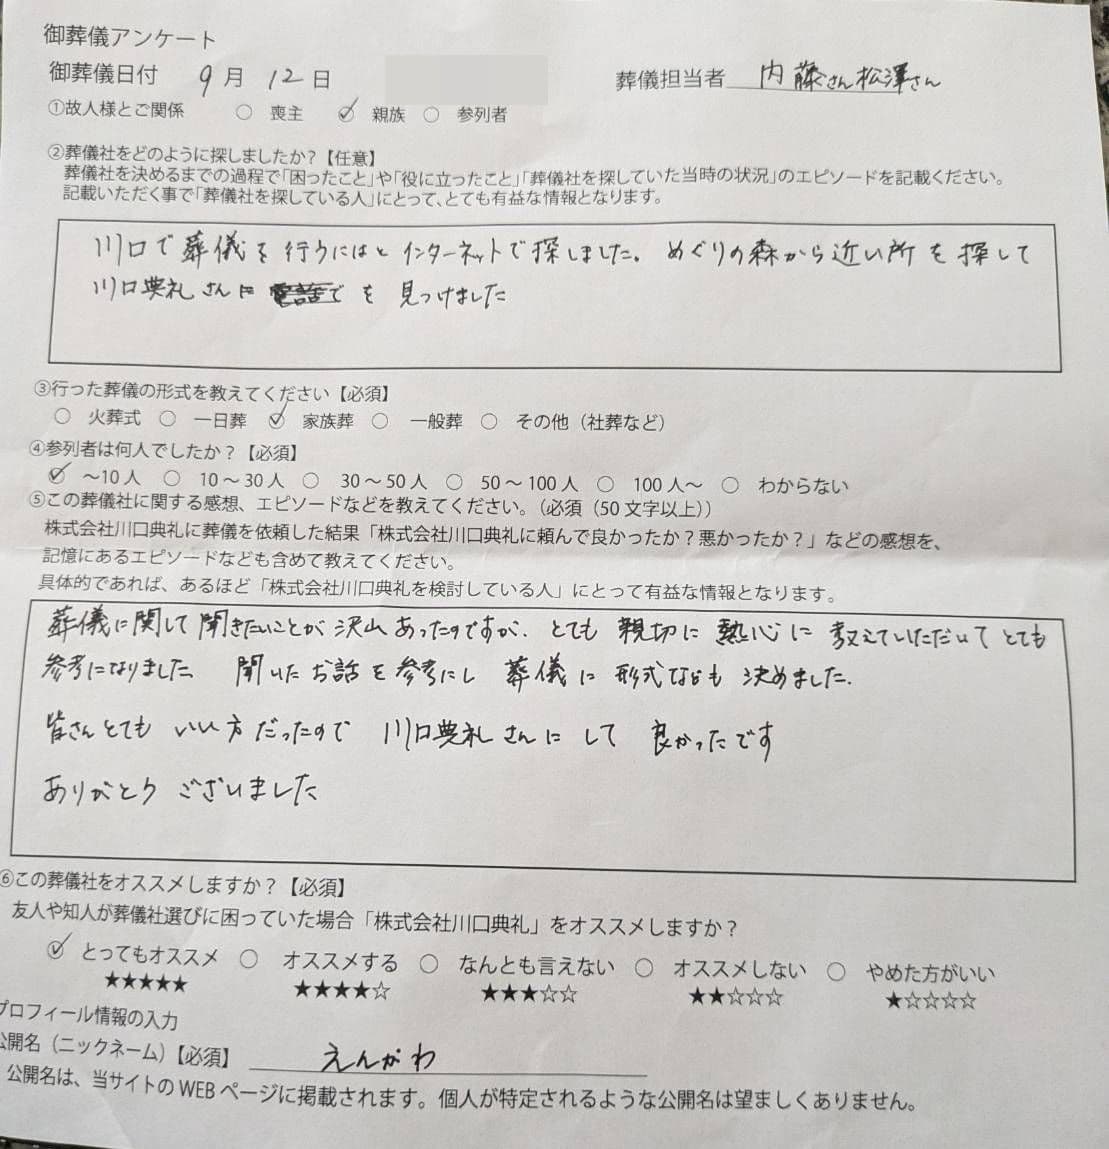 御葬儀アンケート
御葬儀日付 9月12日 葬儀担当者 内藤さん松澤さん
①故人様とご関係 ○ 喪主 ✓ 親族 ○ 参列者
②葬儀社をどのように探しましたか？【任意】
葬儀社を決めるまでの過程で「困ったこと」や「役に立ったこと」「葬儀社を探していた当時の状況」のエピソードを記載ください。
記載いただく事で「葬儀社を探している人」にとって、とても有益な情報となります。
川口で葬儀を行うにはとインターネットで探しました。めぐりの森から近い所を探して
川口典礼さんに を見つけました
③行った葬儀の形式を教えてください【必須】
○ 火葬式 ○ 一日葬 ✓ 家族葬 ○ 一般葬 ○ その他（社葬など）
④参列者は何人でしたか？【必須】
✓ ～10人 ○ 10～30人 ○ 30～50人 ○ 50～100人 ○ 100人～ ○ わからない
⑤この葬儀社に関する感想、エピソードなどを教えてください。（必須（50文字以上））
株式会社川口典礼に葬儀を依頼した結果「株式会社川口典礼に頼んで良かったか？悪かったか？」などの感想を、
記憶にあるエピソードなども含めて教えてください。
具体的であれば、あるほど「株式会社川口典礼を検討している人」にとって有益な情報となります。
葬儀に関して聞きたいことが沢山あったのですが、とても親切に熱心に教えていただいてとても
参考になりました 聞いたお話を参考にし葬儀に形式なども決めました。
皆さんとてもいい方だったので川口典礼さんにして良かったです
ありがとうございました
⑥この葬儀社をオススメしますか？【必須】
友人や知人が葬儀社選びに困っていた場合「株式会社川口典礼」をオススメしますか？
✓ とってもオススメ ○ オススメする ○ なんとも言えない ○ オススメしない ○ やめた方がいい
★★★★★ ★★★★☆ ★★★☆☆ ★★☆☆☆ ★☆☆☆☆
プロフィール情報の入力
公開名（ニックネーム）【必須】 えんがわ
公開名は、当サイトのWEBページに掲載されます。個人が特定されるような公開名は望ましくありません。